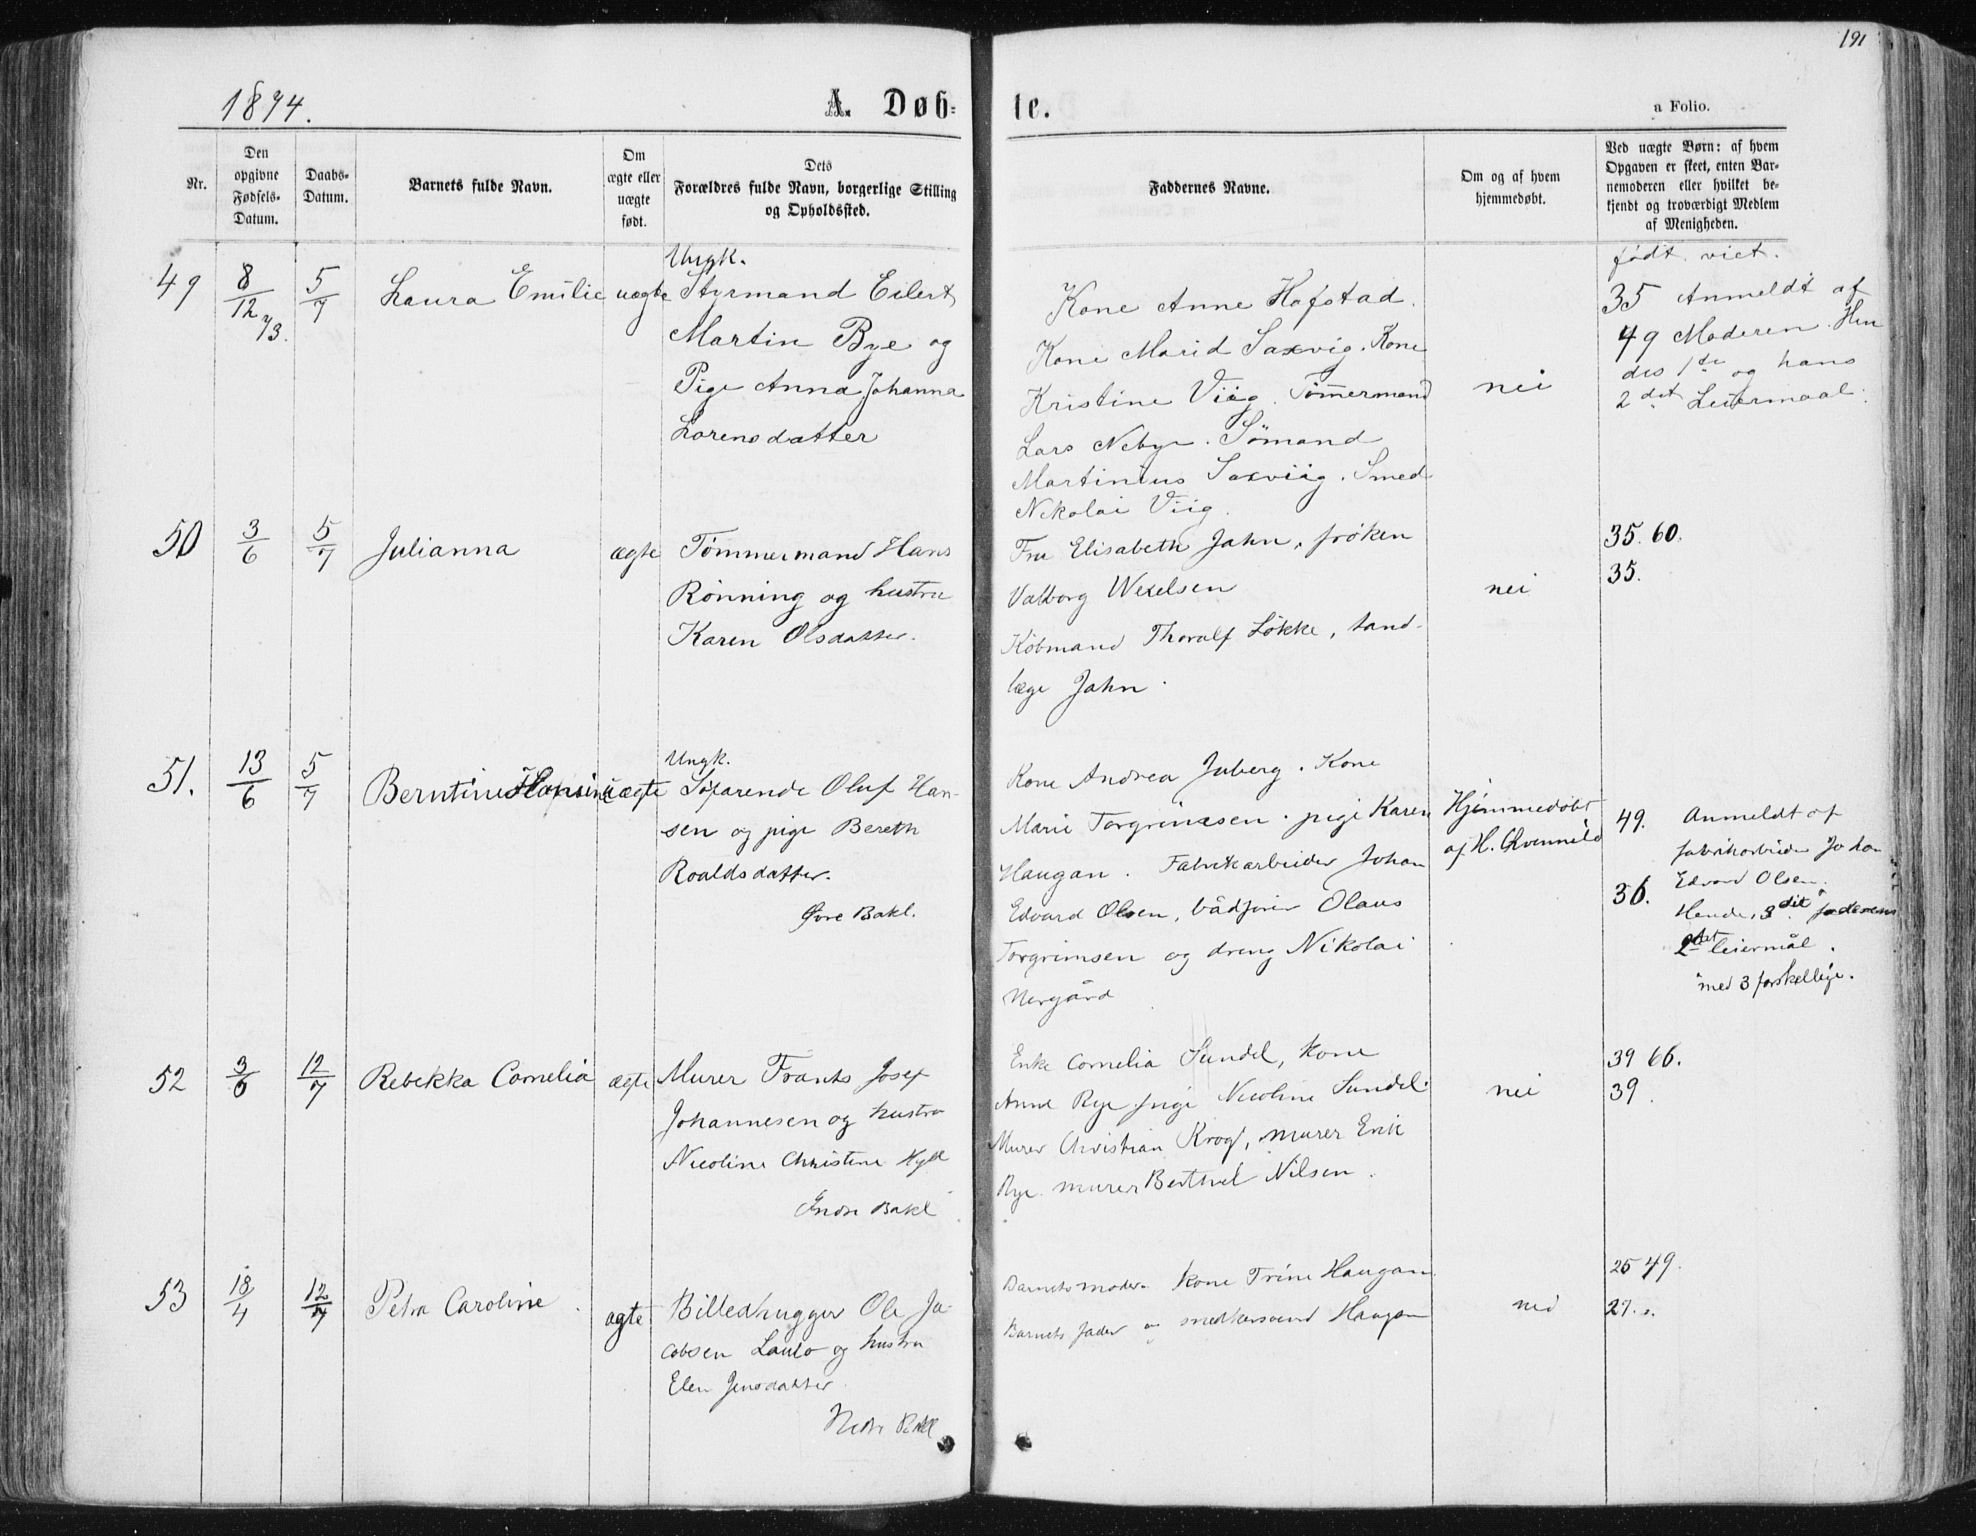 191
1874.
A. Døb=
te.
a Folio.
Nr.
Den opgivne Fødsels-Datum.
Daabs-Datum.
Barnets fulde Navn.
Om ægte eller uægte født.
Dets Forældres fulde Navn, borgerlige Stilling og Opholdssted.
Faddernes Navne.
Om og af hvem hjemmedøbt.
Ved uægte Børn: af hvem Opgaven er skeet, enten Barnemoderen eller hvilket bekjendt og troværdigt Medlem af Menigheden.
49
8/12 73.
5/7
Laura Emilie
uægte
Ungk.
Styrmand Eilert
Martin Bye og
Pige Anna Johanna
Lorensdatter
Kone Anne Hofstad.
Kone Marid Saxvig. Kone
Kristine Viig. Tømmermand
Lars Nebye. Sømand
Martinius Saxviig. Smed
Nikolai Viig.
nei
født viet.
35 Anmeldt af
49 Moderen. Hen
des 1ste og hans
2det Leiermaal.
50
3/6
5/7
Julianna
ægte
Tømmermand Hans
Rønning og hustru
Karen Olsdatter.
Fru Elisabeth Jahn, frøken
Valborg Wexelsen
Købmand Thoralf Løkke, tand-
læge Jahn.
nei
35. 60.
35.
51.
13/6
5/7
Berntine Hansine
uægte
Ungk.
Søfarende Oluf Han-
sen og pige Bereth
Roaldsdatter.
Øvre Bakl.
Kone Andrea Juberg. Kone
Marie Torgrimsen. pige Karen
Haugan. Fabrikarbeider Johan
Edvard Olsen, bådfører Olaus
Torgrimsen og dreng Nikolai
Nergård
Hjemmedøbt
af H.
49. Anmeldt af
fabrikarbeider Johan
Edvard Olsen.
36. Hendes 3dit faderens
2det leiermål.
med 3 forskellige.
52
3/6
12/7
Rebekka Cornelia
ægte
Murer Frants Josef
Johannesen og hustru
Nicoline Christine
Indre Bakl
Enke Cornelia Sundel, kone
Anne Rye pige Nicoline Sundel.
Murer Christian Krog, murer Erik
Rye. murer Berthel Nilsen.
nei
39 66.
39.
53
18/4
12/7
Petra Caroline
ægte
Billedhugger Ole Ja-
cobsen Laulo og hustru
Elen Jensdatter.
Nedre Bakl
Barnets moder. kone Trine Haugan
Barnets fader og smedsvend Haugan
nei
25 49.
27.